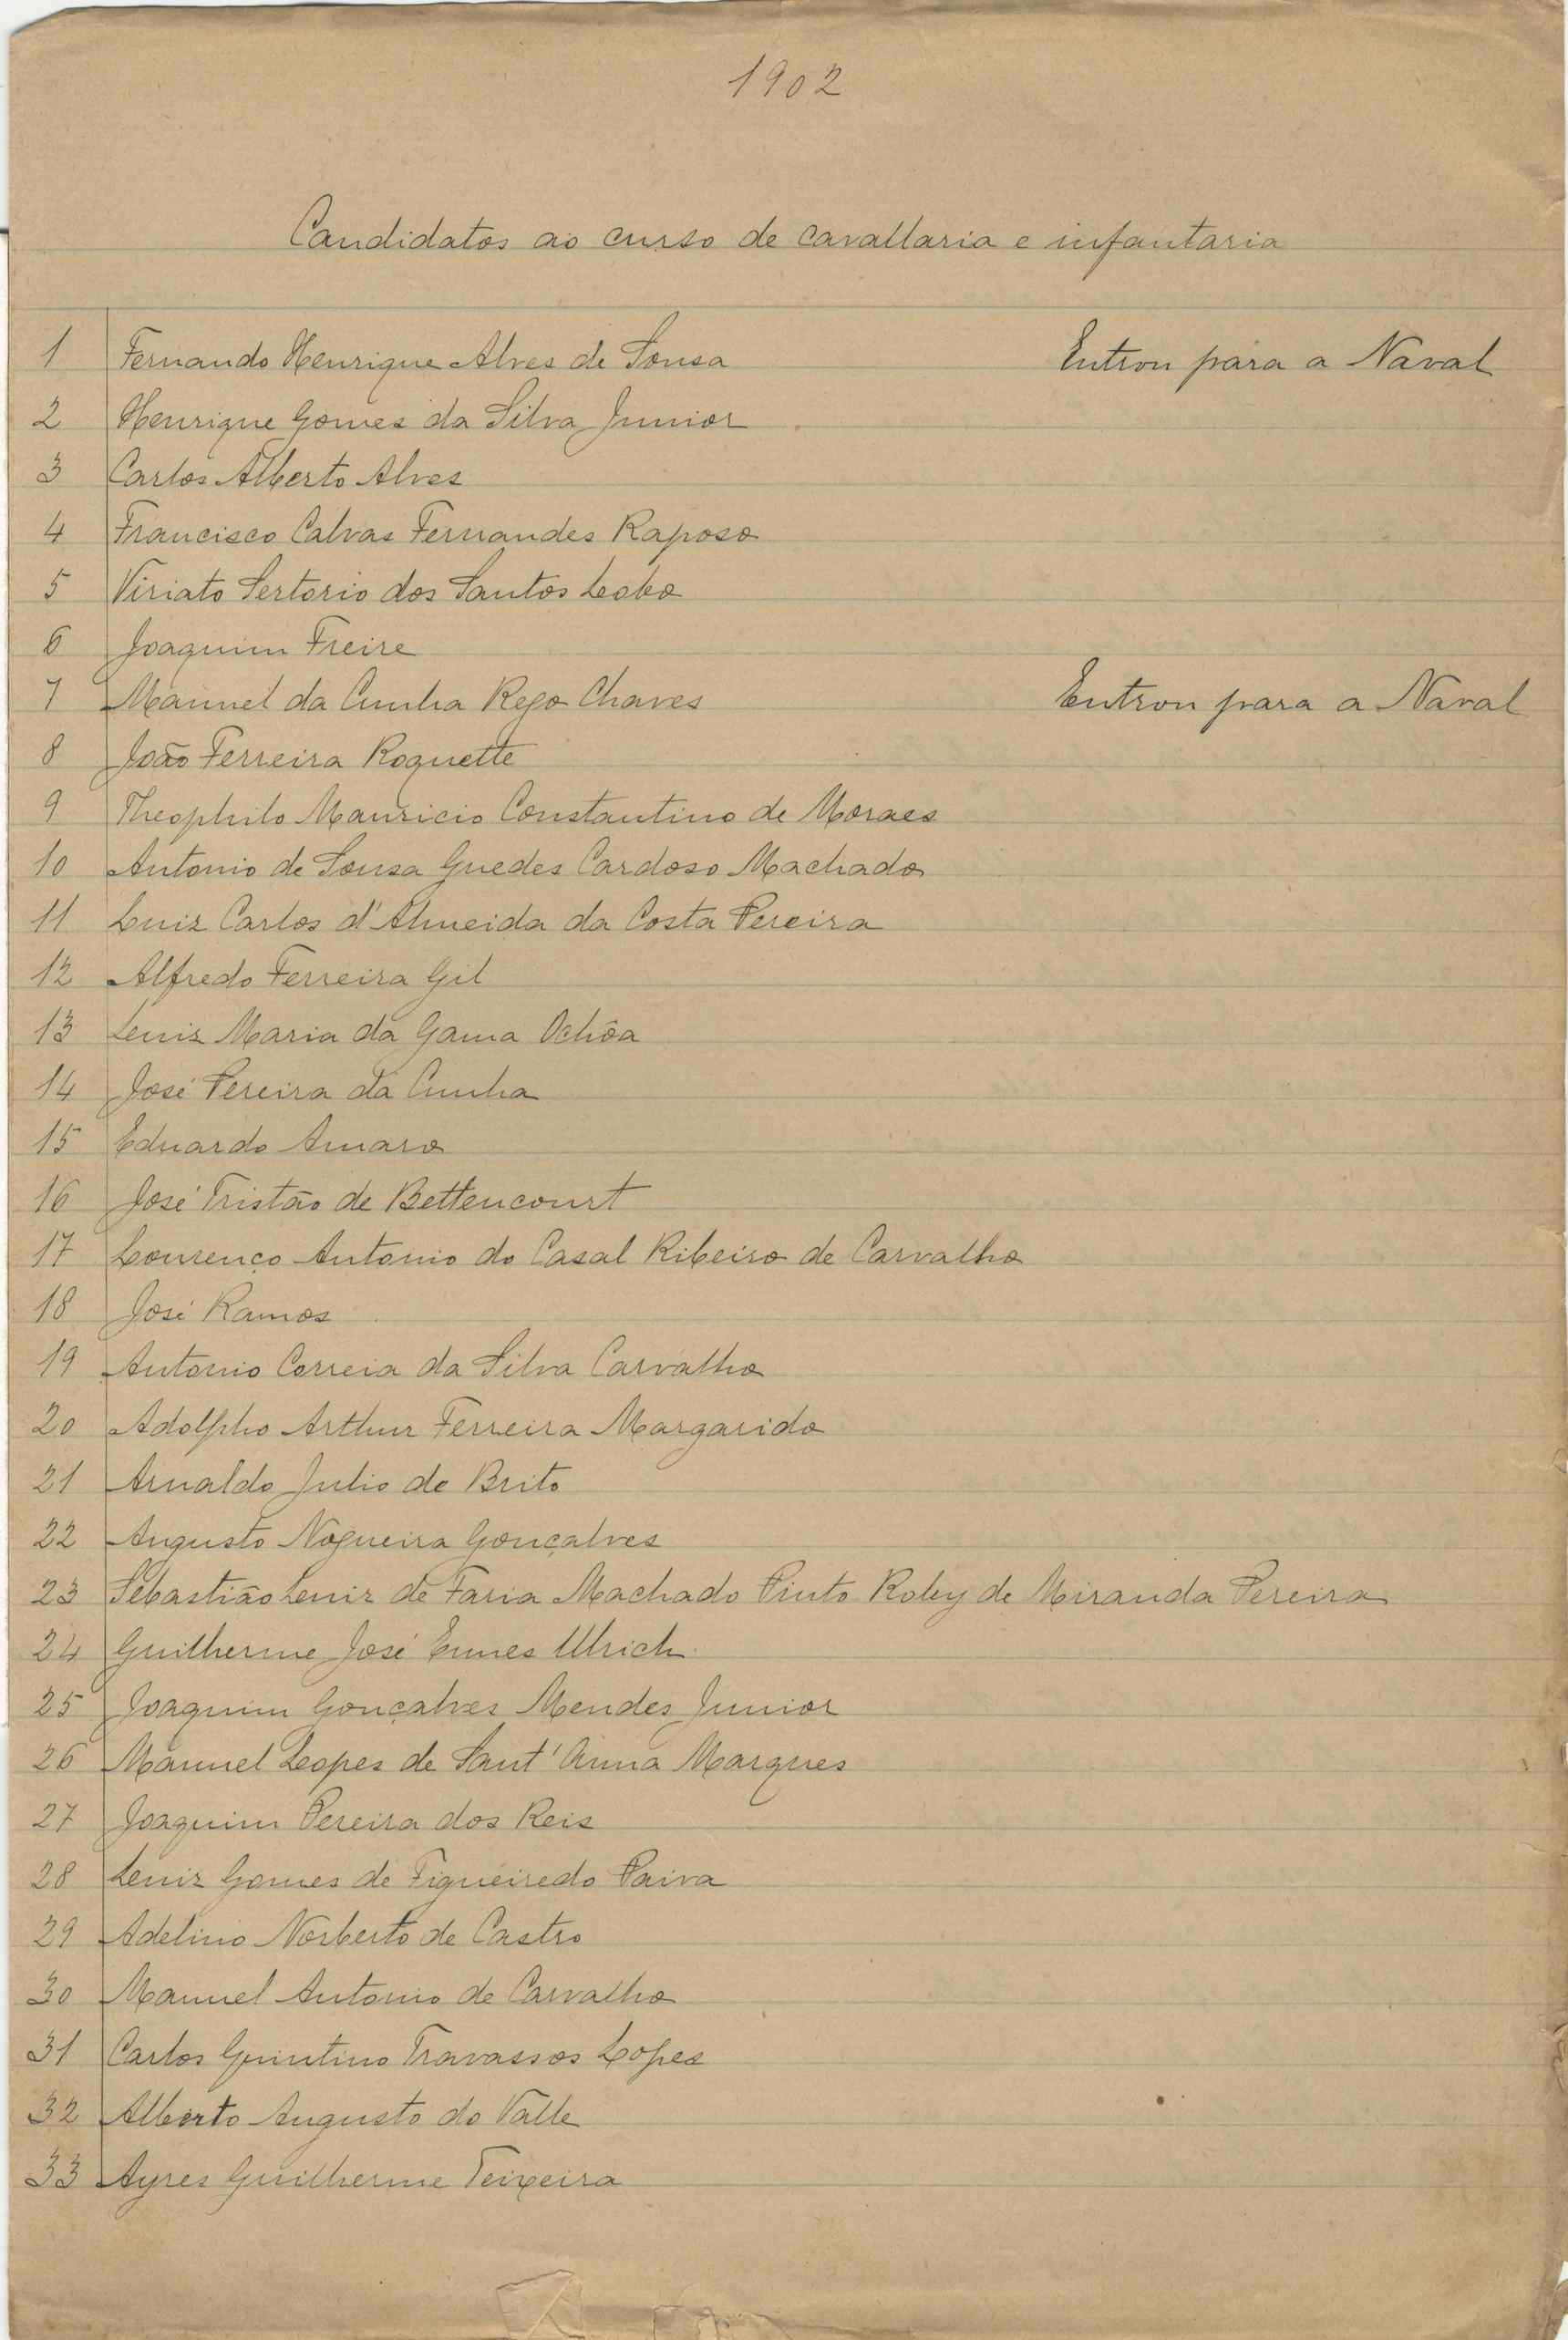 1902
Candidatos ao curso de cavallaria e infantaria
1 Fernando Henrique Alves de Sousa Entrou para a Naval
2 Henrique Gomes da Silva Junior
3 Carlos Alberto Alves
4 Francisco Calvas Fernandes Raposo
5 Viriato Sertorio dos Santos Lobo
6 Joaquim Freire
7 Manuel da Cunha Rego Chaves Entrou para a Naval
8 João Ferreira Roquette
9 Theophilo Mauricio Constantino de Moraes
10 Antonio de Sousa Guedes Cardoso Machado
11 Luiz Carlos d'Almeida da Costa Pereira
12 Alfredo Ferreira Gil
13 Luiz Maria da Gama Ochôa
14 José Pereira da Cunha
15 Eduardo Amaro
16 José Tristão de Bettencourt
17 Lourenço Antonio do Casal Ribeiro de Carvalho
18 José Ramos
19 Antonio Correia da Silva Carvalho
20 Adolpho Arthur Ferreira Margarido
21 Arnaldo Julio de Brito
22 Augusto Nogueira Gonçalves
23 Sebastião Luiz de Faria Machado Pinto Roby de Miranda Pereira
24 Guilherme José Ennes Ulrich
25 Joaquim Gonçalves Mendes Junior
26 Manuel Lopes de Sant'Anna Marques
27 Joaquim Pereira dos Reis
28 Luiz Gomes de Figueiredo Paiva
29 Adelino Norberto de Castro
30 Manuel Antonio de Carvalho
31 Carlos Quintino Travassos Lopes
32 Alberto Augusto do Valle
33 Ayres Guilherme Teixeira